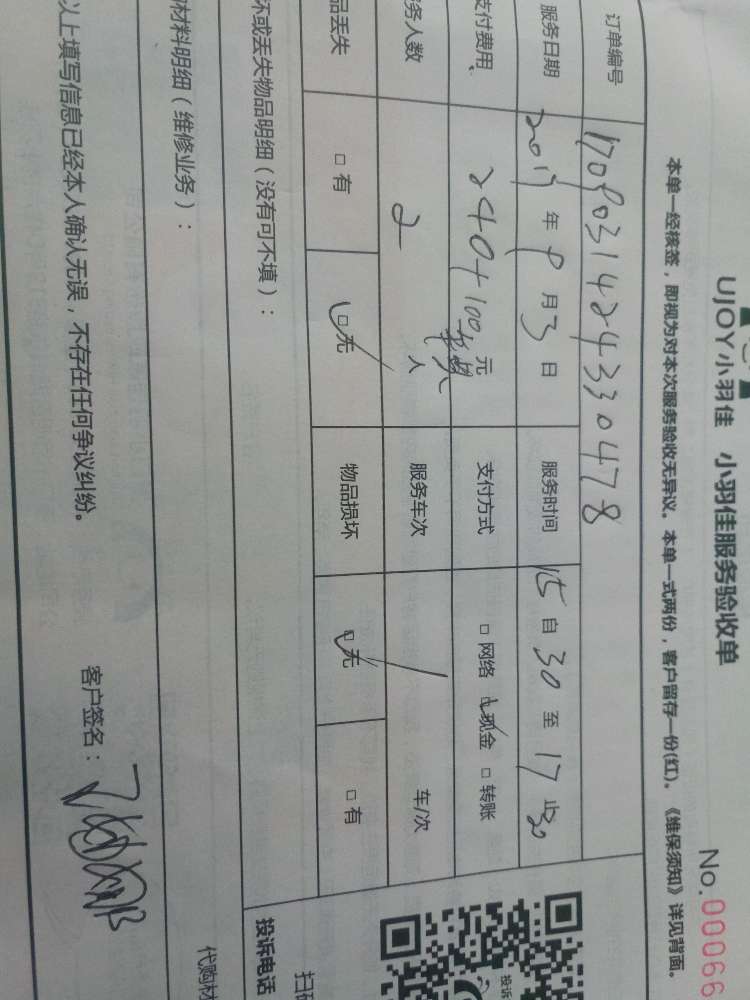 UJOY小羽佳 小羽佳服务验收单
No.00066
本单一经核签，即视为对本次服务验收无异议。本单一式两份，客户留存一份(红)。《维保须知》详见背面。
订单编号 1709031424330478
服务日期 2017年9月3日 服务时间 15自30至17止30
支付费用 240+100元 支付方式 □网络 □现金 □转账
务人数 2人 服务车次 / 车/次
品丢失 □有 □无 物品损坏 □无 □有
坏或丢失物品明细（没有可不填）：
投诉
投诉电话
扫
材料明细（维修业务）：
代购材
以上填写信息已经本人确认无误，不存在任何争议纠纷。
客户签名：